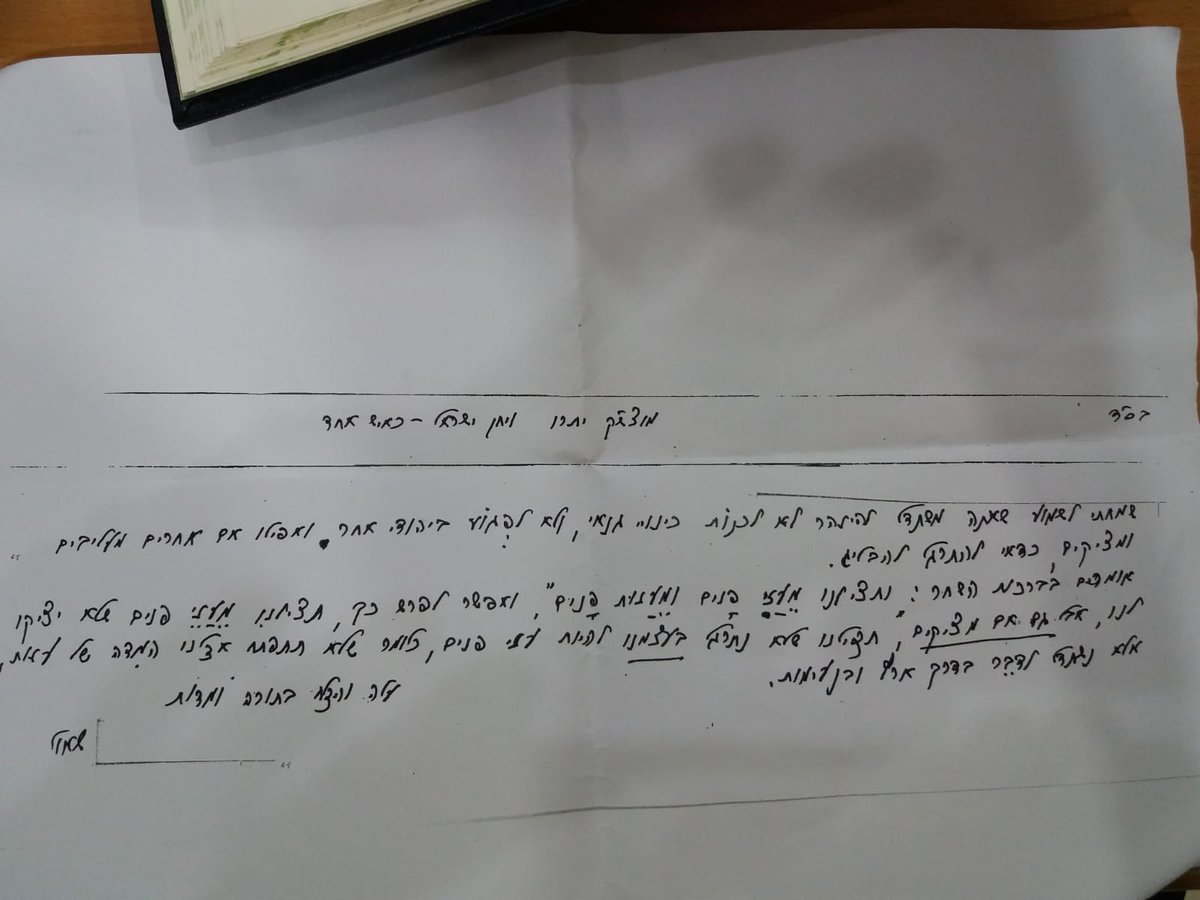 בס"ד
מוצש"ק יתרו ויחן ישראל - כאיש אחד
שמחתי לשמוע שאתה משתדל להיזהר לא לכנות כינויי גנאי, ולא לפגוע ביהודי אחר. ואפילו אם אחרים מעליבים
ומציקים, כדאי להתרגל להבליג.
אומרים בברכות השחר: ותצילנו מֵעַזֵי פָנים ומֵעַזות פָנים", ואפשר לפרש כך, תצילנו מֵעַזֵי פנים שלא יציקו
לנו, אבל גם אם מציקים, תצילנו שלא נתרגל בעצמנו להיות עזי פנים, כלומר שלא תתפתח אצלנו המדה של עזות,
אלא נשתדל לדבר בדרך ארץ ובנעימות.
עלה והצלח בתורה ומדות
שמואל